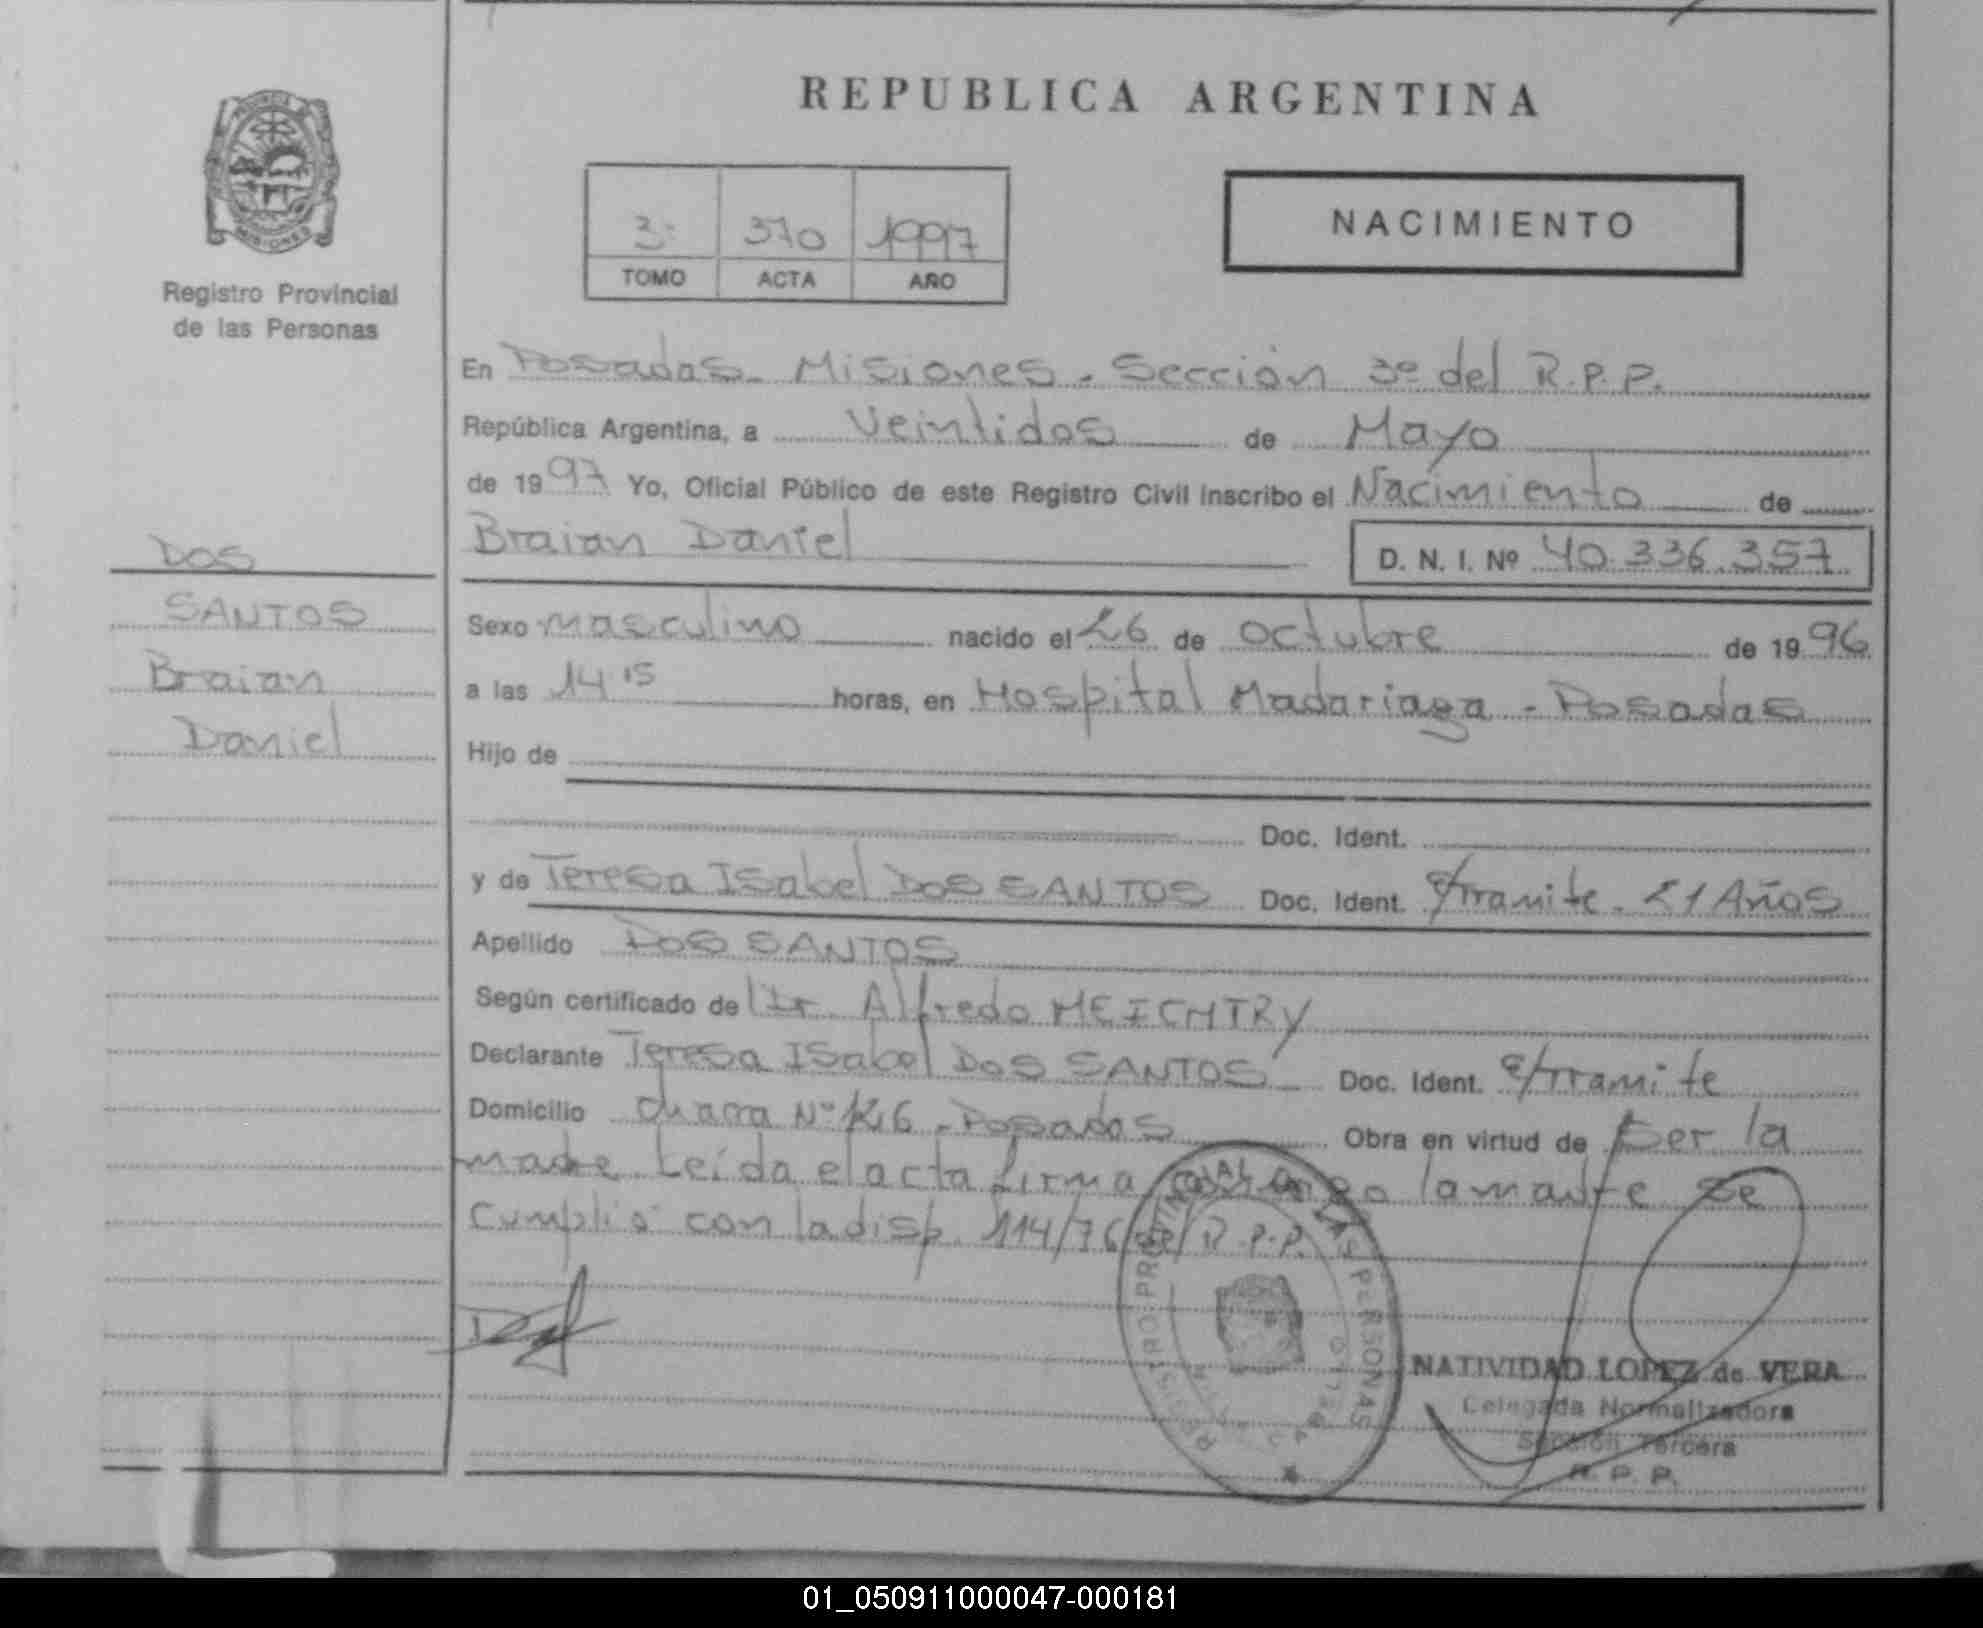 REPUBLICA ARGENTINA
PROVINCIA
MISIONES
Registro Provincial
de las Personas
3: 370 1997
TOMO ACTA AÑO
NACIMIENTO
En Posadas - Misiones - Sección 3º del R.P.P.
República Argentina, a Veintidos de Mayo
de 1997 Yo, Oficial Público de este Registro Civil inscribo el Nacimiento de
Braian Daniel D. N. I. Nº 40.336.357
DOS
SANTOS
Braian
Daniel
Sexo masculino nacido el 26 de octubre de 1996
a las 14 15 horas, en Hospital Madariaga - Posadas
Hijo de
Doc. Ident.
y de Teresa Isabel DOS SANTOS Doc. Ident. e/tramite - 21 Años
Apellido DOS SANTOS
Según certificado de Dr. Alfredo MEICHTRY
Declarante Teresa Isabel DOS SANTOS Doc. Ident. e/tramite
Domicilio chacra Nº - Posadas Obra en virtud de ser la
madre Leída el acta firma la madre Se
Cumplió con la disp. 114/76 R.P.P.
REGISTRO PROVINCIAL DE LAS PERSONAS
NATIVIDAD LOPEZ de VERA
Delegada Normalizadora
Sección Tercera
R. P. P.
01_050911000047-000181